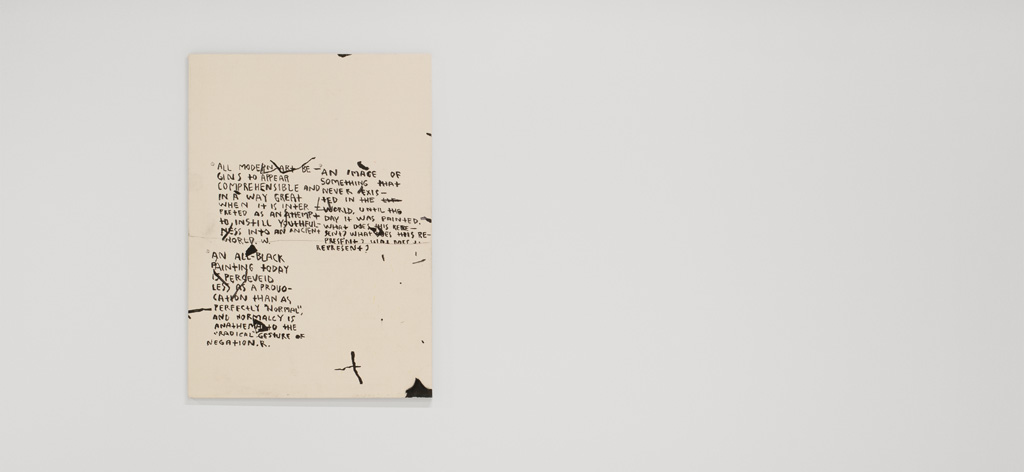 "ALL MODERN ART BE-
GINS TO APPEAR
COMPREHENSIBLE AND
IN A WAY GREAT
WHEN IT IS INTER-
PRETED AS AN ATTEMPT
TO INSTILL YOUTHFUL-
NESS INTO AN ANCIENT
WORLD. W.
"AN IMAGE OF
SOMETHING THAT
NEVER EXIS-
TED IN THE
WORLD, UNTIL THE
DAY IT WAS PAINTED.
WHAT DOES THIS REPRE-
SENT? WHAT DOES THIS RE-
PRESENT? WHAT DOES
REPRESENT?
"AN ALL-BLACK
PAINTING TODAY
IS PERCEVEID
LESS AS A PROVO-
CATION THAN AS
PERFECTLY "NORMAL",
AND NORMALCY IS
ANATHEMA TO THE
"RADICAL" GESTURE OF
NEGATION. R.